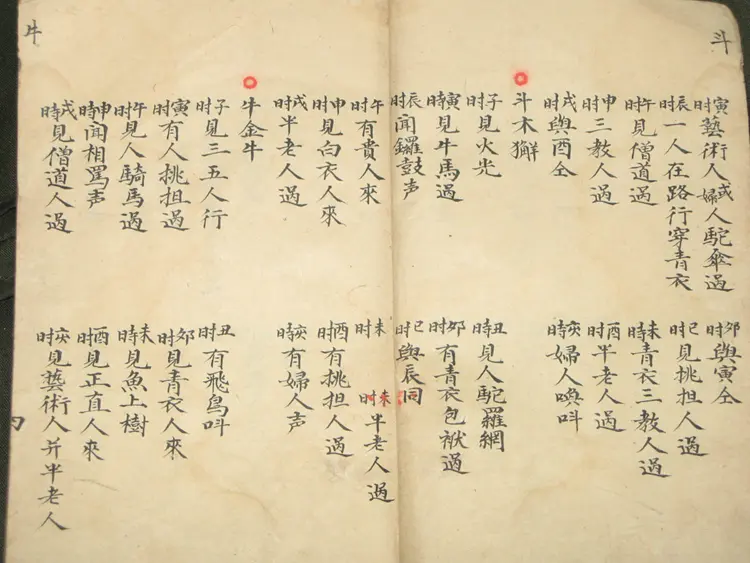 斗
寅时藝術人或婦人駝傘過
卯时與寅仝
辰时一人在路行穿青衣
巳时見挑担人過
午时見僧道過
未時青衣三教人過
申时三教人過
酉时半老人過
戌时與酉仝
亥時婦人喚呌
斗木獬
子时見火光
丑時見人駝羅網
寅時見牛馬過
卯时有青衣包袱過
辰时聞鑼鼓声
巳时與辰同
午时有貴人來
未时
未时半老人過
申时見白衣人來
酉时有挑担人過
戌时半老人過
亥時有婦人声
牛
牛金牛
子时見三五人行
丑时有飛鳥呌
寅时有人挑担過
卯时見青衣人來
午时見人騎馬過
未時見魚上樹
申時聞相罵声
酉时見正直人來
戌時見僧道人過
亥時見藝術人并半老人